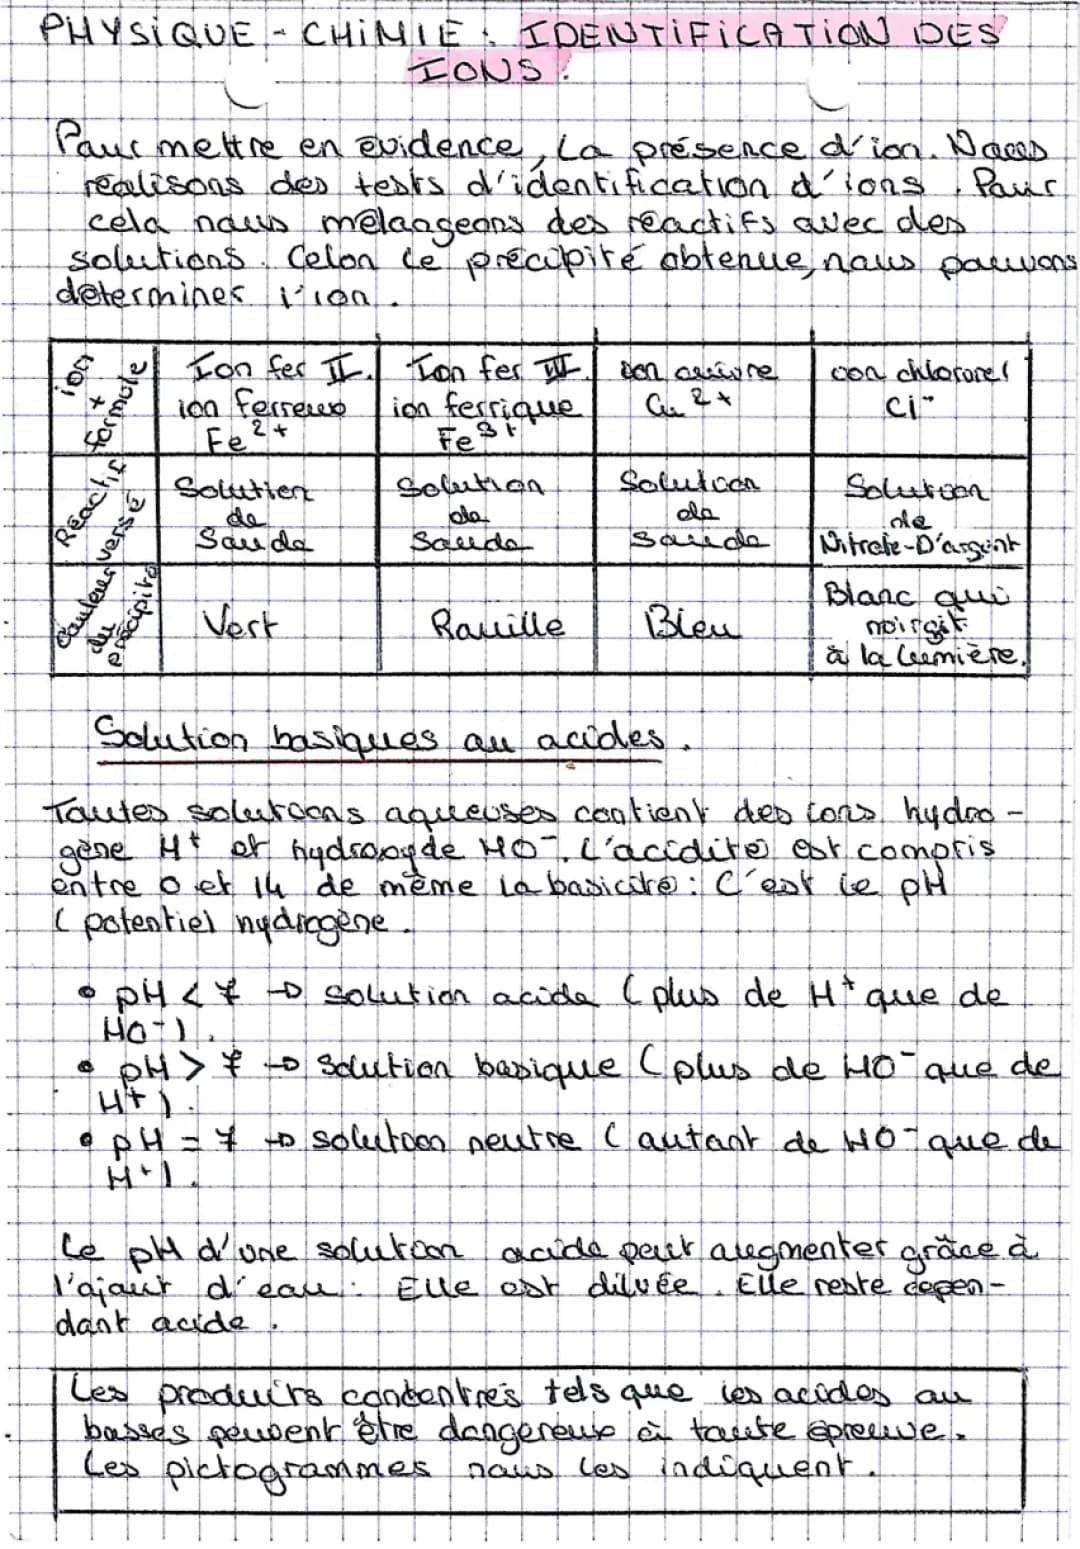 PHYSIQUE - CHIMIE : IDENTIFICATION DES
IONS.
Pour mettre en évidence, la présence d'ion. Nous
réalisons des tests d'identification d'ions. Pour
cela nous mélangeons des réactifs avec des
solutions. Celon le précipité obtenue, nous pouvons
déterminer l'ion.
ion + formule
Ion fer II.
ion ferreux
Fe2+
Ion fer III.
ion ferrique
Fe3+
ion cuivre
Cu 2+
ion chlorure
Cl-
Réactif versé
Solution
de
Soude
Solution
de
Soude
Solution
de
Soude
Solution
de
Nitrate-D'argent
Couleur du précipité
Vert
Rouille
Bleu
Blanc qui
noircit
à la lumière.
Solution basiques ou acides.
Toutes solutions aqueuses contient des ions hydro-
gène H+ et hydroxyde HO-. L'acidité est compris
entre 0 et 14 de même la basicité : C'est le pH
( potentiel hydrogène.
• pH < 7 → solution acide ( plus de H+ que de
HO-).
• pH > 7 → solution basique ( plus de HO- que de
H+).
• pH = 7 → solution neutre ( autant de HO- que de
H+).
Le pH d'une solution acide peut augmenter grâce à
l'ajout d'eau : Elle est diluée. Elle reste cepen-
dant acide.
Les produits concentrés tels que les acides ou
basses peuvent être dangereux à toute épreuve.
Les pictogrammes nous les indiquent.